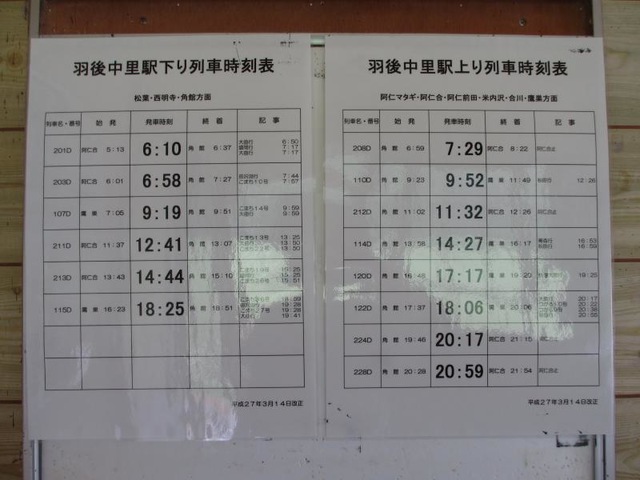 羽後中里駅下り列車時刻表
松葉・西明寺・角館方面
列車名・番号 始発 発車時刻 終着 記事
201D 阿仁合 5:13 6:10 角館 6:37 大曲行 6:50 盛岡行 7:17 大曲行 7:17
203D 阿仁合 6:01 6:58 角館 7:27 7:44 こまち10号 7:57
107D 鷹巣 7:05 9:19 角館 9:51 こまち14号 9:59 大曲行 9:59
211D 阿仁合 11:37 12:41 角館 13:07 13:25 13:50 13:50
213D 阿仁合 13:43 14:44 角館 15:10 15:25 15:25 15:51
115D 鷹巣 16:23 18:25 角館 18:51 18:59 19:28 19:28 大曲行 19:41
平成27年3月14日改正
羽後中里駅上り列車時刻表
阿仁マタギ・阿仁合・阿仁前田・米内沢・合川・鷹巣方面
列車名・番号 始発 発車時刻 終着 記事
208D 角館 6:59 7:29 阿仁合 8:22 阿仁合止
110D 角館 9:23 9:52 鷹巣 11:49 秋田行 12:26
212D 角館 11:02 11:32 阿仁合 12:26 阿仁合止
114D 角館 13:58 14:27 鷹巣 16:17 16:53 16:59
120D 角館 16:48 17:17 鷹巣 19:20 19:25
122D 角館 17:37 18:06 鷹巣 20:06 大館行 20:17 20:22 20:38 20:58
224D 角館 19:46 20:17 阿仁合 21:15 阿仁合止
228D 角館 20:28 20:59 阿仁合 21:54 阿仁合止
平成27年3月14日改正